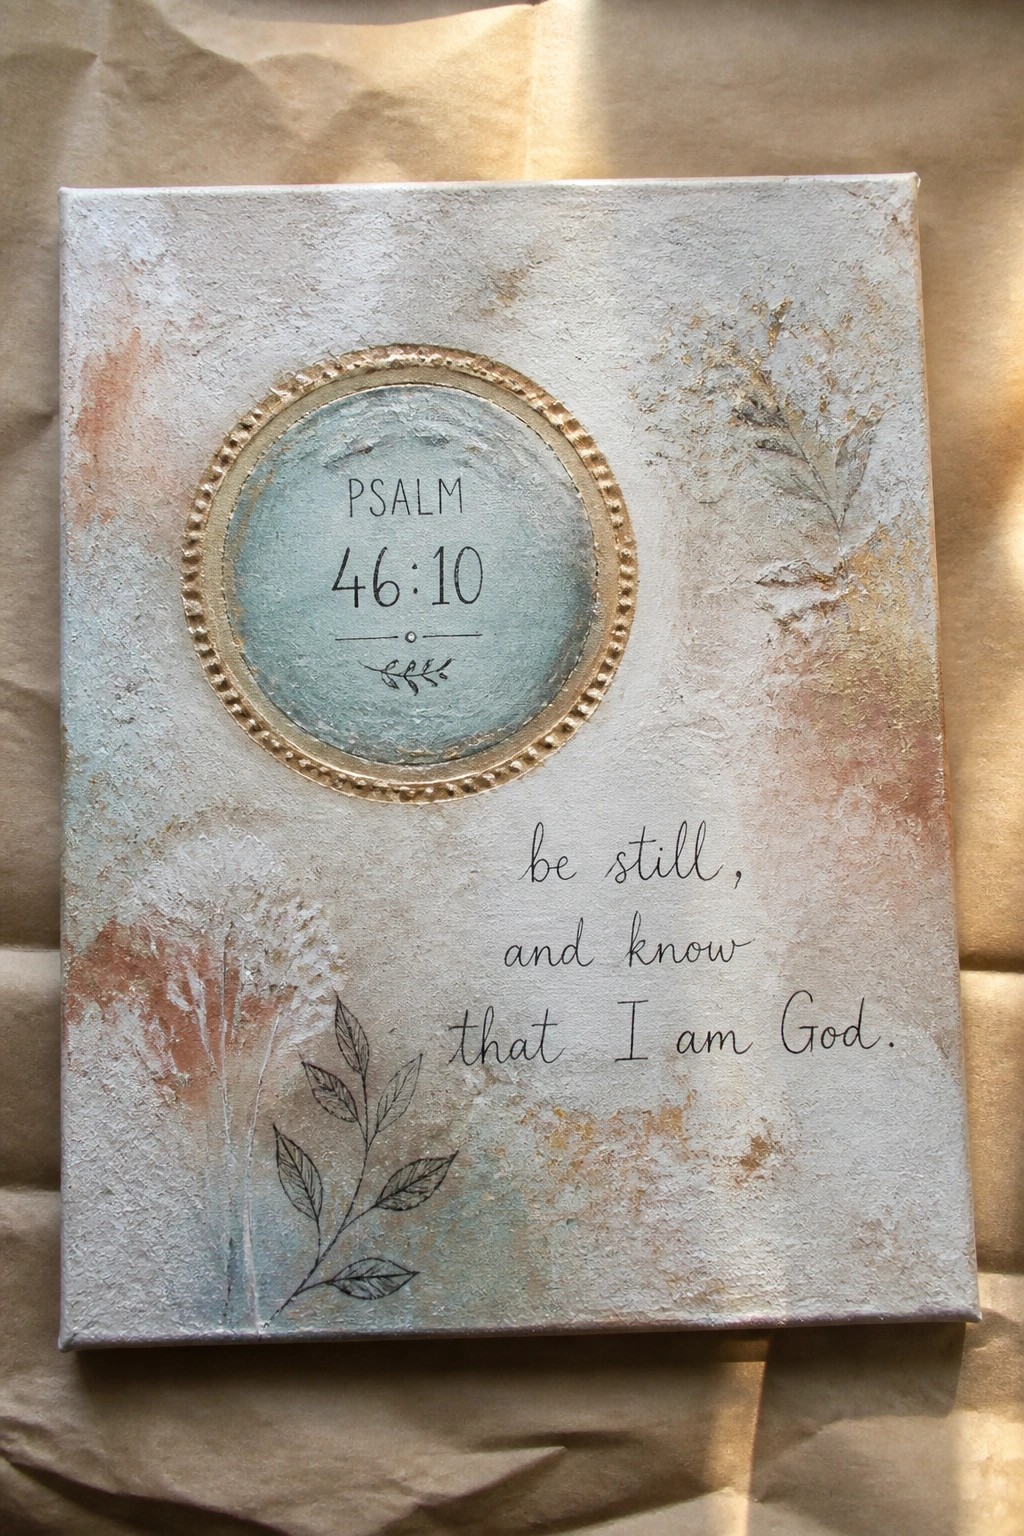 PSALM
46:10
be still,
and know
that I am God.